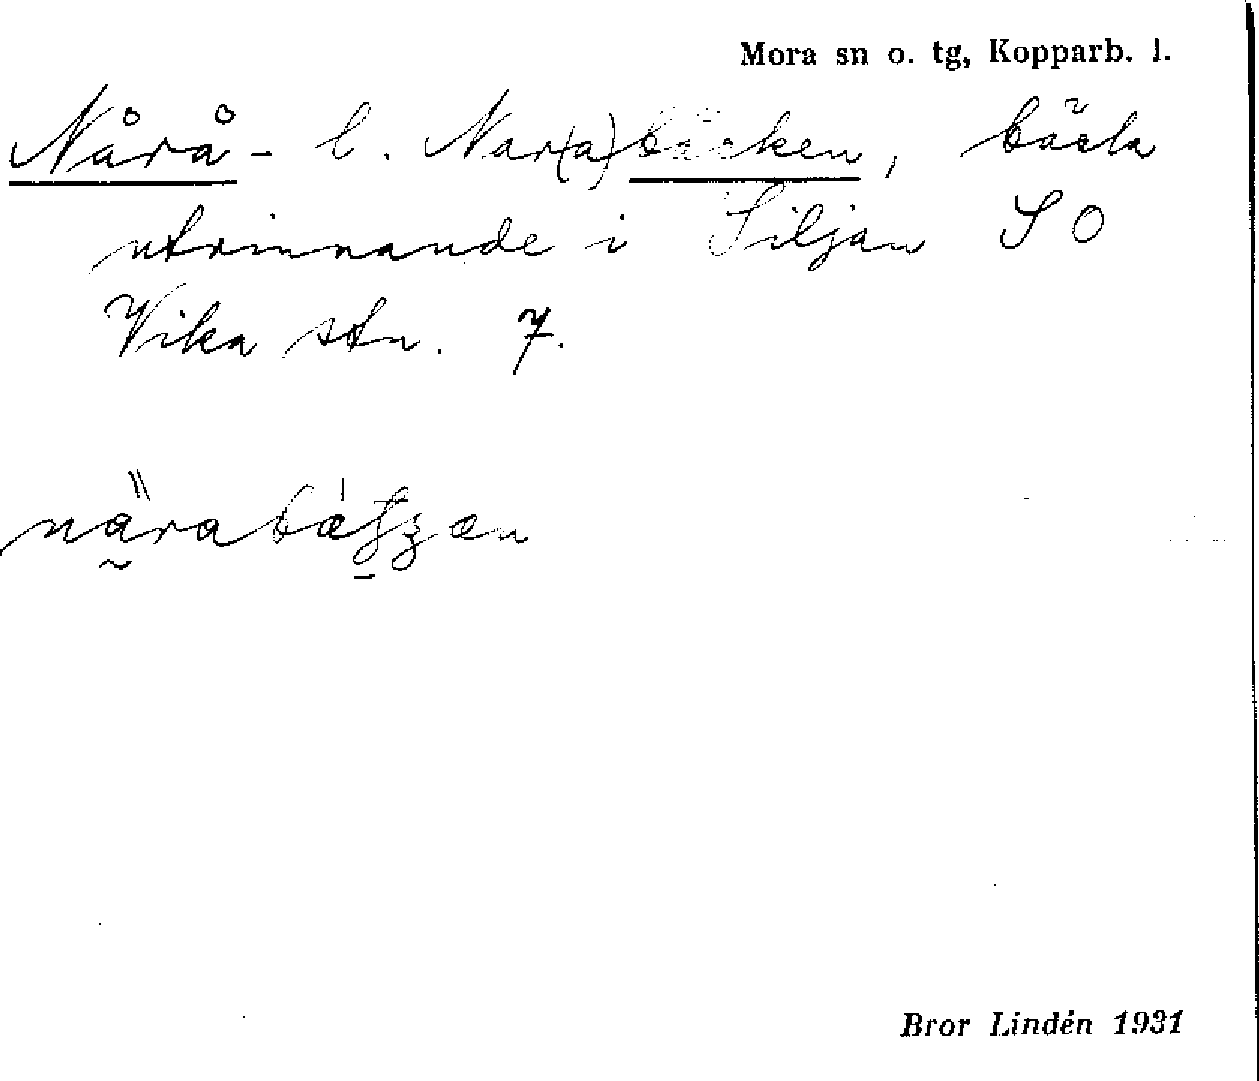 Mora sn o. tg, Kopparb. l.
Nårå- l. Nar(a)bäcken, bäck
utrinnande i Siljan SO
Vika stn. 7.
Bror Lindén 1931